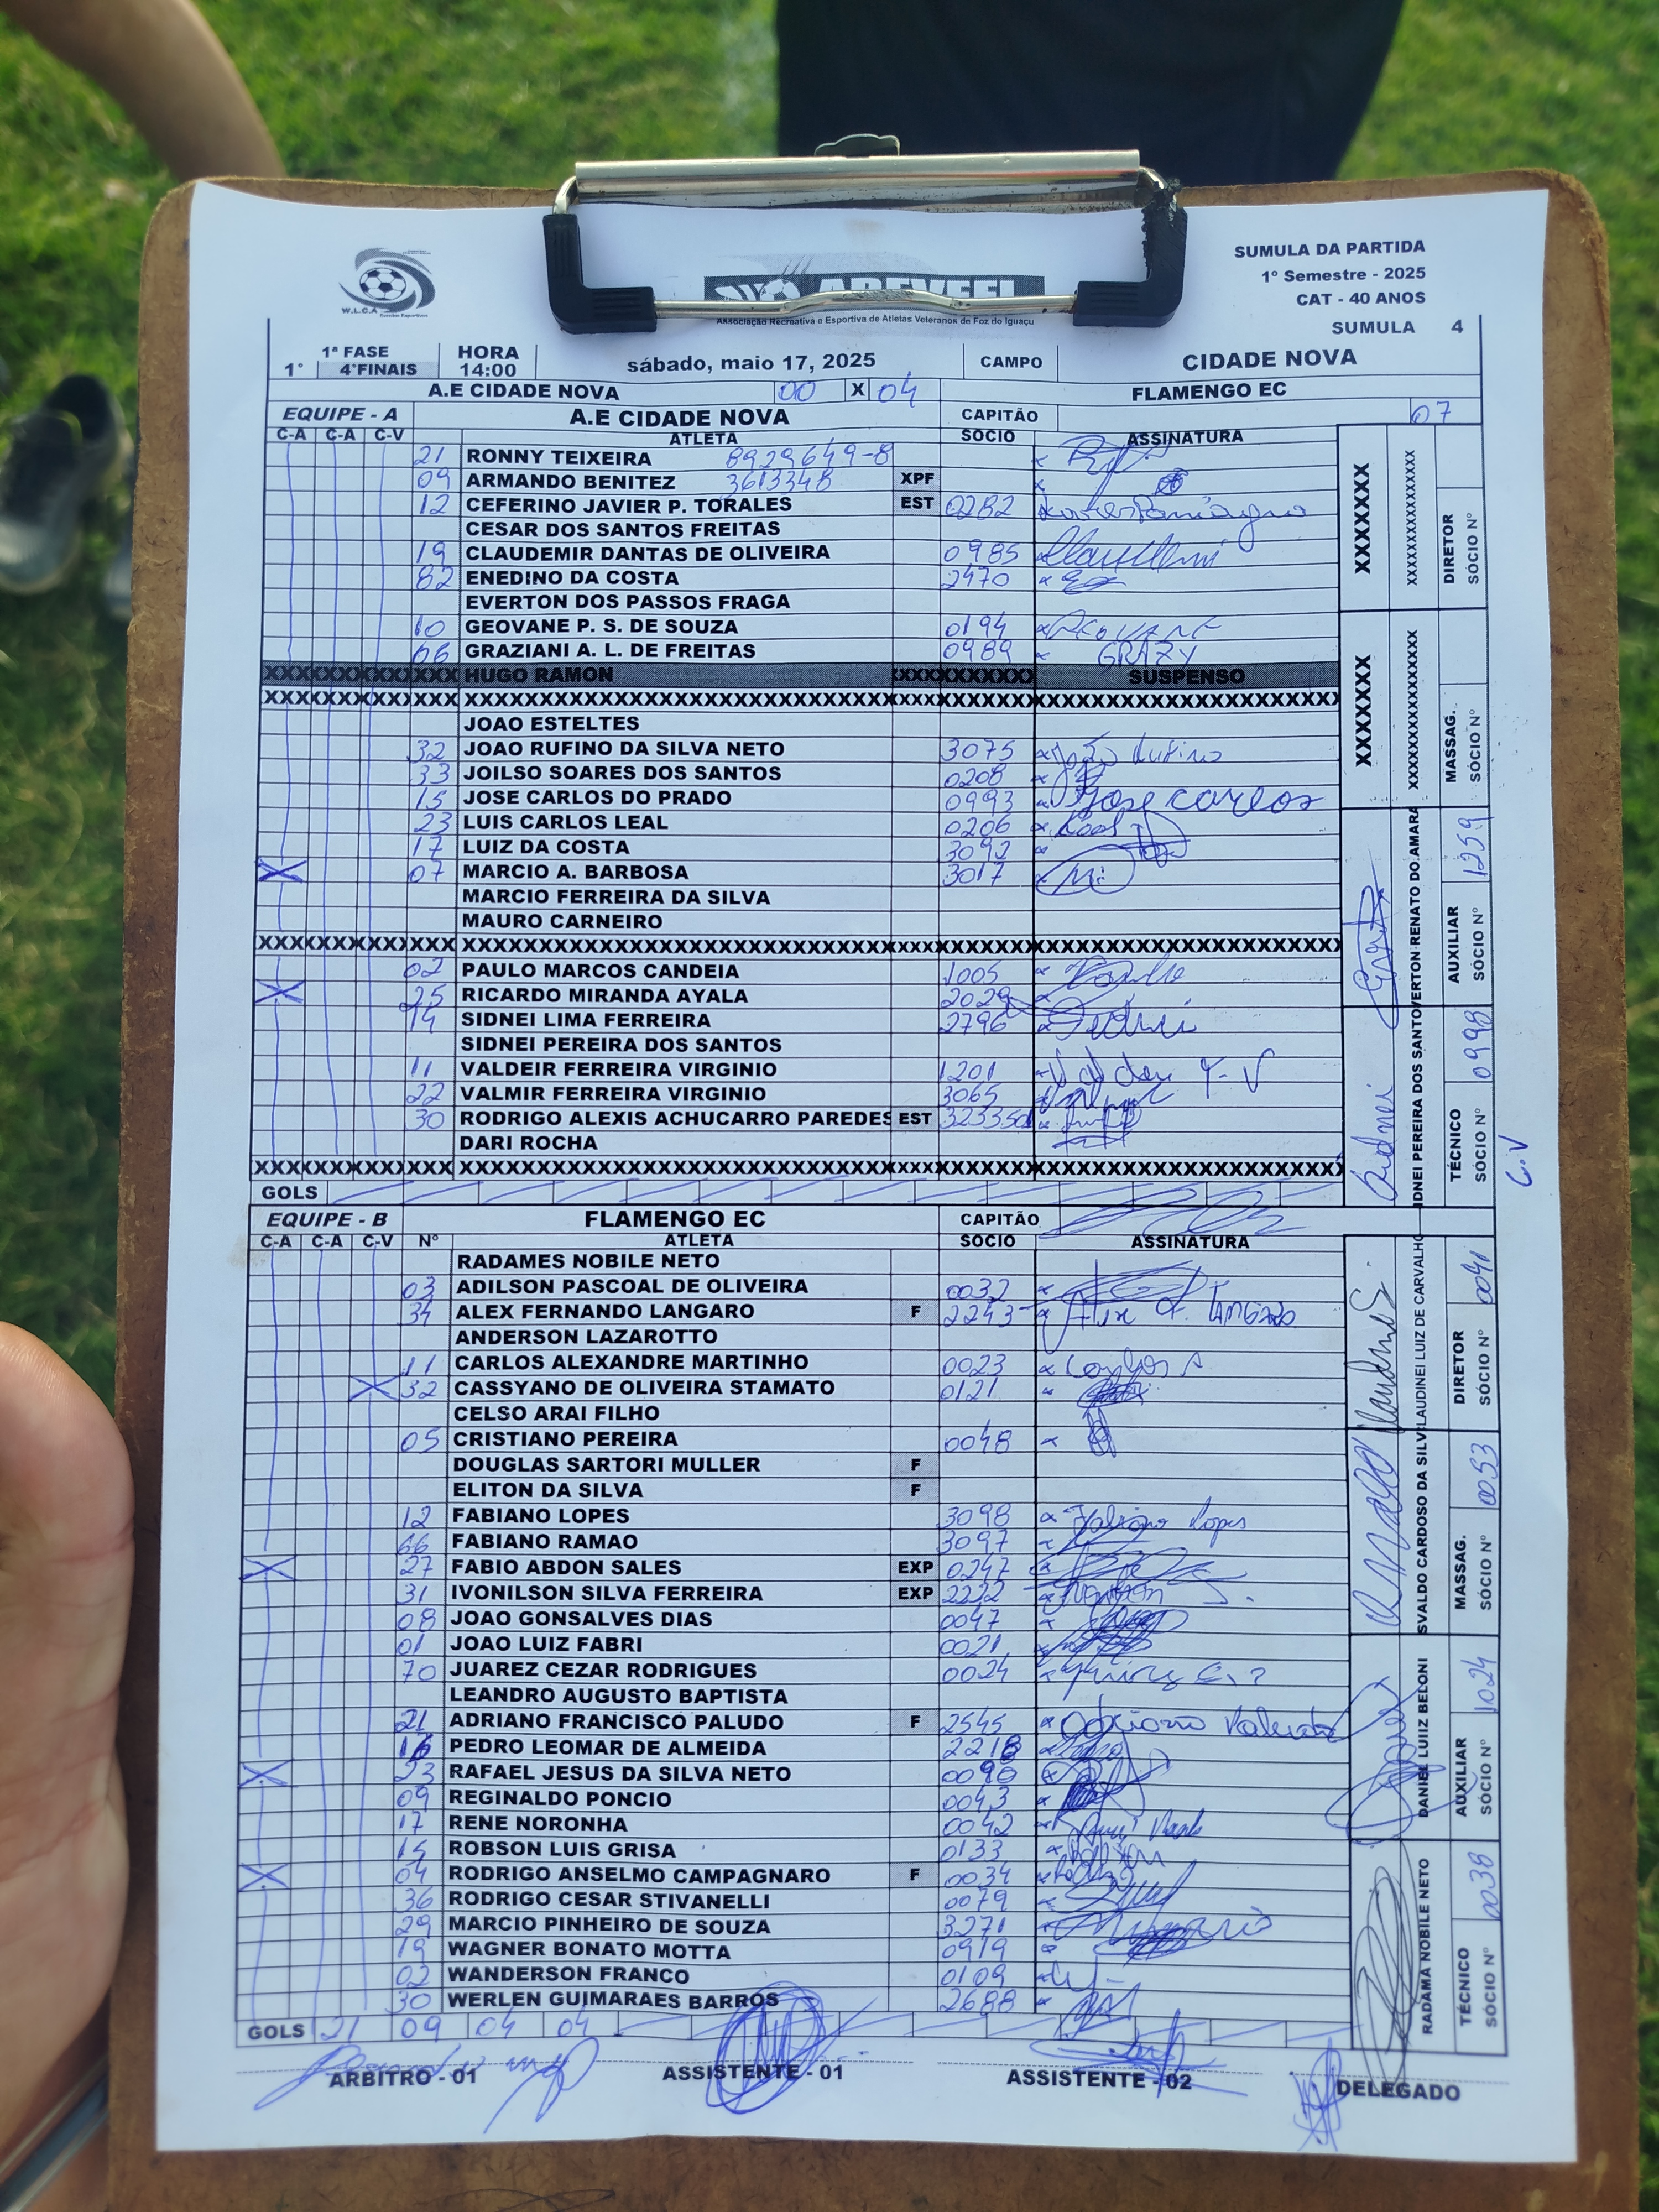 W.L.C.A
AREVEFI
Associação Recreativa e Esportiva de Atletas Veteranos de Foz do Iguaçu
SUMULA DA PARTIDA
1º Semestre - 2025
CAT - 40 ANOS
SUMULA 4
1º 1ª FASE 4ªFINAIS HORA 14:00 sábado, maio 17, 2025 CAMPO CIDADE NOVA
A.E CIDADE NOVA 00 X 04 FLAMENGO EC
EQUIPE - A A.E CIDADE NOVA CAPITÃO 07
C-A C-A C-V ATLETA SÓCIO ASSINATURA
21 RONNY TEIXEIRA 8929649-8
09 ARMANDO BENITEZ 3613348 XPF
12 CEFERINO JAVIER P. TORALES EST 0282
CESAR DOS SANTOS FREITAS
19 CLAUDEMIR DANTAS DE OLIVEIRA 0985
82 ENEDINO DA COSTA 2470
EVERTON DOS PASSOS FRAGA
10 GEOVANE P. S. DE SOUZA 0194
66 GRAZIANI A. L. DE FREITAS 0989 GRAZY
HUGO RAMON SUSPENSO
JOAO ESTELTES
32 JOAO RUFINO DA SILVA NETO 3075 João Rufino
33 JOILSO SOARES DOS SANTOS 0208
15 JOSE CARLOS DO PRADO 0993 Jose carlos
23 LUIS CARLOS LEAL 0206
17 LUIZ DA COSTA 3092
07 MARCIO A. BARBOSA 3017
MARCIO FERREIRA DA SILVA
MAURO CARNEIRO
02 PAULO MARCOS CANDEIA 1005
25 RICARDO MIRANDA AYALA 2029
14 SIDNEI LIMA FERREIRA 2796
SIDNEI PEREIRA DOS SANTOS
11 VALDEIR FERREIRA VIRGINIO 1201
22 VALMIR FERREIRA VIRGINIO 3065
30 RODRIGO ALEXIS ACHUCARRO PAREDES EST
DARI ROCHA
GOLS
DIRETOR SÓCIO Nº
MASSAG. SÓCIO Nº
VERTON RENATO DO AMARA AUXILIAR SÓCIO Nº 1259
IDNEI PEREIRA DOS SANTO TÉCNICO SÓCIO Nº 0998
C.V
EQUIPE - B FLAMENGO EC CAPITÃO
C-A C-A C-V Nº ATLETA SÓCIO ASSINATURA
RADAMES NOBILE NETO
03 ADILSON PASCOAL DE OLIVEIRA 0032
34 ALEX FERNANDO LANGARO F 2243
ANDERSON LAZAROTTO
11 CARLOS ALEXANDRE MARTINHO 0023
32 CASSYANO DE OLIVEIRA STAMATO 0121
CELSO ARAI FILHO
05 CRISTIANO PEREIRA 0048
DOUGLAS SARTORI MULLER F
ELITON DA SILVA F
12 FABIANO LOPES 3098 Fabiano Lopes
66 FABIANO RAMAO 3097
27 FABIO ABDON SALES EXP 0247
31 IVONILSON SILVA FERREIRA EXP 2222
08 JOAO GONSALVES DIAS 0047
01 JOAO LUIZ FABRI 0021
70 JUAREZ CEZAR RODRIGUES 0024
LEANDRO AUGUSTO BAPTISTA
21 ADRIANO FRANCISCO PALUDO F 2545
16 PEDRO LEOMAR DE ALMEIDA 2218
23 RAFAEL JESUS DA SILVA NETO 0090
09 REGINALDO PONCIO 0043
17 RENE NORONHA 0042
15 ROBSON LUIS GRISA 0133
04 RODRIGO ANSELMO CAMPAGNARO F 0034
36 RODRIGO CESAR STIVANELLI 0079
29 MARCIO PINHEIRO DE SOUZA 3271
19 WAGNER BONATO MOTTA 0919
02 WANDERSON FRANCO 0109
30 WERLEN GUIMARAES BARROS 2688
GOLS 21 09 04 04
LAUDINEI LUIZ DE CARVALHO DIRETOR SÓCIO Nº 0041
SVALDO CARDOSO DA SILV MASSAG. SÓCIO Nº 0053
DANIEL LUIZ BELONI AUXILIAR SÓCIO Nº 1024
RADAMA NOBILE NETO TÉCNICO SÓCIO Nº 0038
ARBITRO - 01 ASSISTENTE - 01 ASSISTENTE - 02 DELEGADO